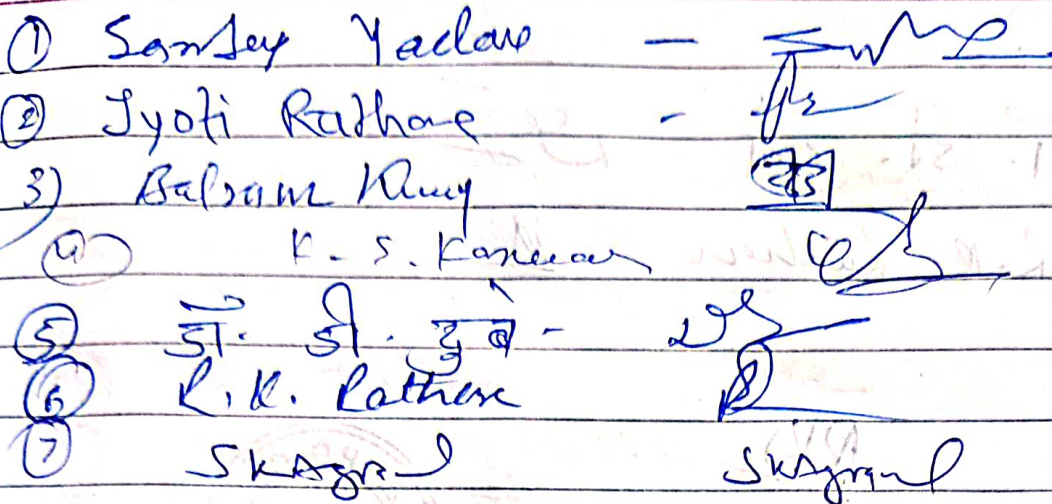 ① Sanjay Yadav -
② Jyoti Rathore -
3) Balram
④ K. S. Kanwar
⑤ डॉ. डी. दुबे -
⑥ R. K. Rathore
⑦ SKAgrawal SKAgrawal